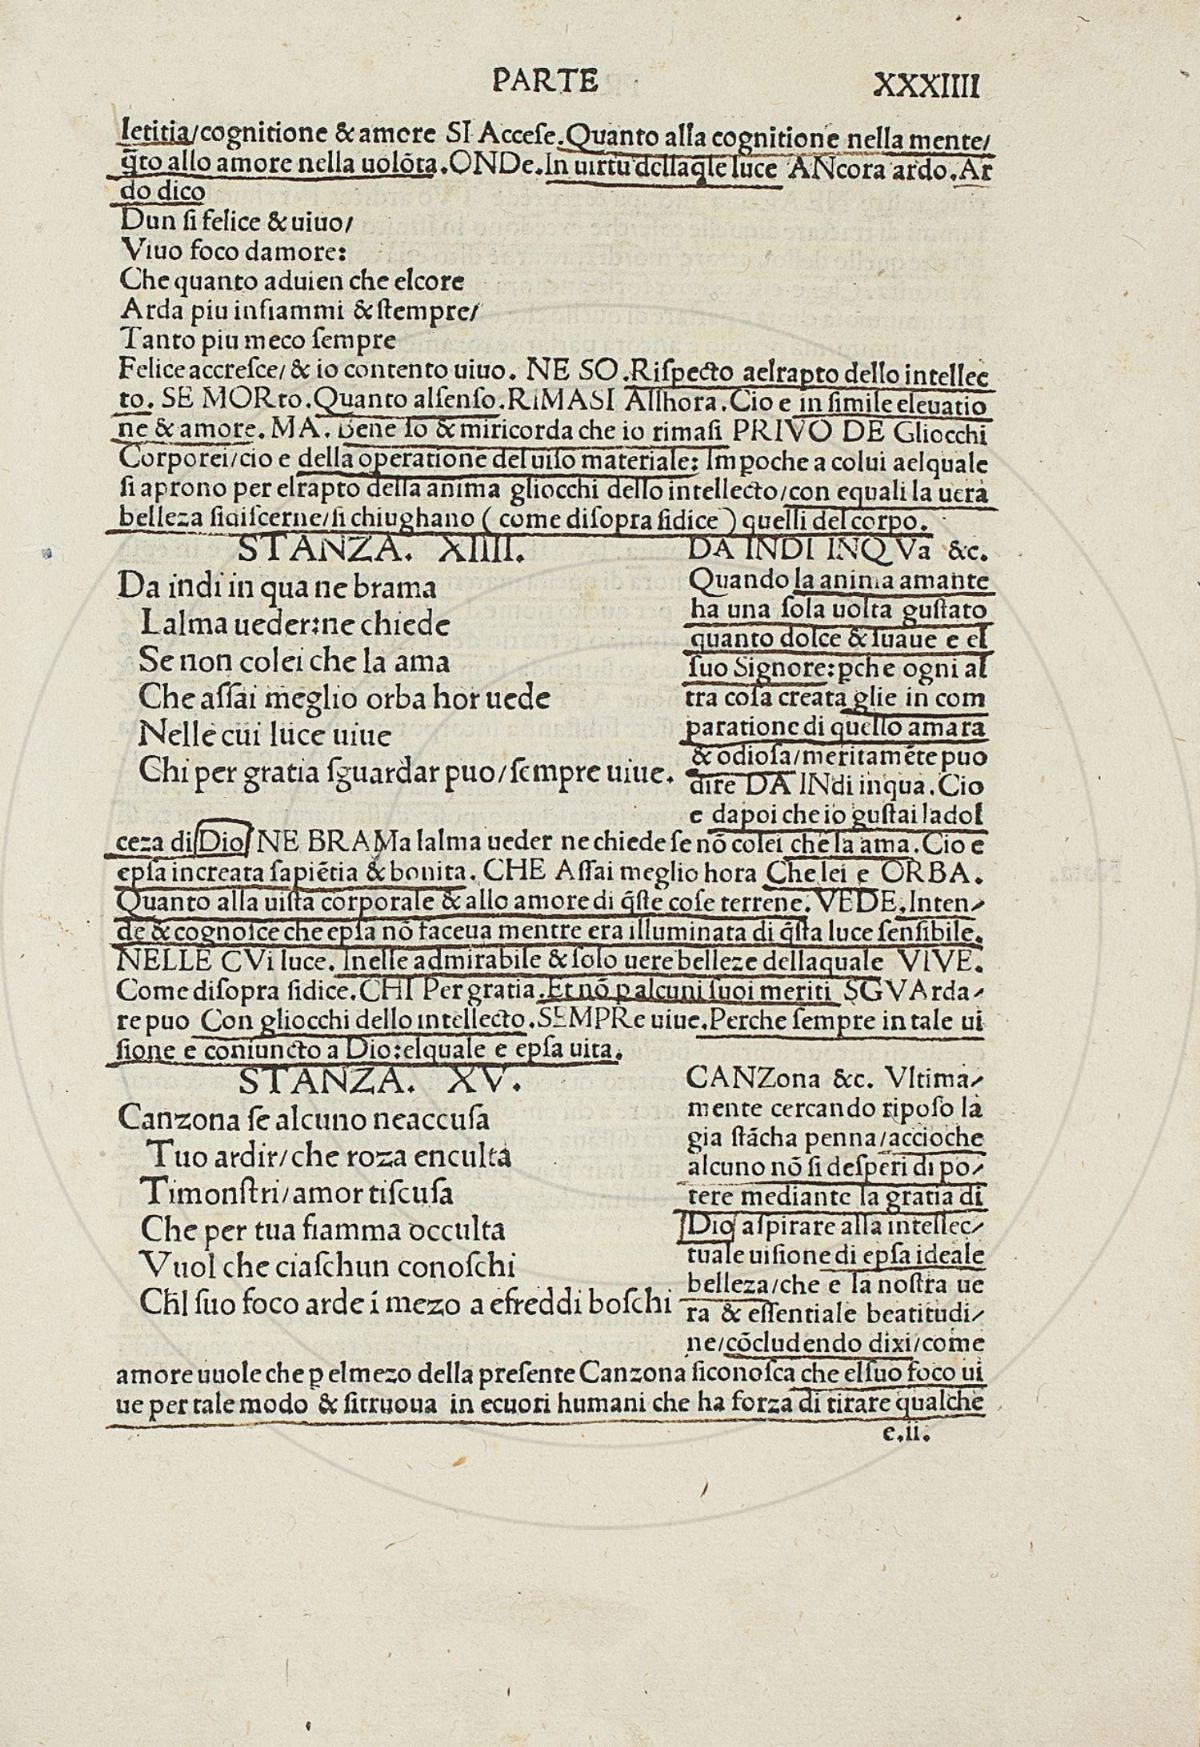 PARTE
XXXIIII
letitia/cognitione & amore SI Accese. Quanto alla cognitione nella mente/
q̃to allo amore nella uolõta. ONDe. In uirtu dellaq̃le luce ANcora ardo. Ar
do dico
Dun si felice & uiuo/
Viuo foco damore:
Che quanto aduien che elcore
Arda piu infiammi & stempre/
Tanto piu meco sempre
Felice accresce/ & io contento uiuo. NE SO. Rispecto aelrapto dello intellec
to. SE MORto. Quanto alsenso. RIMASI Allhora. Cio e in simile eleuatio
ne & amore. MA. Bene so & miricorda che io rimasi PRIVO DE Gliocchi
Corporei/cio e della operatione del uiso materiale: Imꝑoche a colui aelquale
si aprono per elrapto della anima gliocchi dello intellecto/con equali la uera
bellezza sidiscerne/si chiughano ( come disopra sidice ) quelli del corpo.
STANZA. XIIII.
Da indi in qua ne brama
Lalma ueder:ne chiede
Se non colei che la ama
Che assai meglio orba hor uede
Nelle cui luce uiue
Chi per gratia sguardar puo/sempre uiue.
DA INDI INQVa &c.
Quando la anima amante
ha una sola uolta gustato
quanto dolce & suaue e el
suo Signore:ꝑche ogni al
tra cosa creata glie in com
paratione di quello amara
& odiosa/meritamẽte puo
dire DA INdi inqua. Cio
e dapoi che io gustai ladol
ceza di Dio NE BRAMa lalma ueder ne chiede se nõ colei che la ama. Cio e
epsa increata sapiẽtia & bonita. CHE Assai meglio hora Che lei e ORBA.
Quanto alla uista corporale & allo amore di q̃ste cose terrene. VEDE. Inten/
de & cognosce che epsa nõ faceua mentre era illuminata di q̃sta luce sensibile.
NELLE CVi luce. Inelle admirabile & solo uere belleze dellaquale VIVE.
Come disopra sidice. CHI Per gratia. Et nõ ꝑ alcuni suoi meriti SGVArda/
re puo Con gliocchi dello intellecto. SEMPRe uiue. Perche sempre in tale ui
sione e coniuncto a Dio:elquale e epsa uita.
STANZA. XV.
Canzona se alcuno neaccusa
Tuo ardir/che roza enculta
Timonstri/amor tiscusa
Che per tua fiamma occulta
Vuol che ciaschun conoschi
Ch̃l suo foco arde ĩ mezo a efreddi boschi
CANZona &c. Vltima/
mente cercando riposo la
gia stãcha penna/accioche
alcuno nõ si desperi di po/
tere mediante la gratia di
Dio aspirare alla intellec/
tuale uisione di epsa ideale
belleza/che e la nostra ue
ra & essentiale beatitudi/
ne/cõcludendo dixi/come
amore uuole che ꝑ elmezo della presente Canzona siconosca che elsuo foco ui
ue per tale modo & sitruoua in ecuori humani che ha forza di tirare qualche
e.ii.